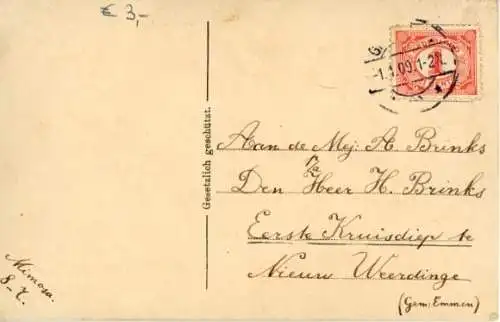 € 3,-
-1.1.09.1-2N.
1
Gesetzlich geschützt.
Aan de Mej: A Brinks
p/a
Den Heer H. Brinks
Eerste Kruisdiep te
Nieuw Weerdinge
(Gem: Emmen)
Mimosa.